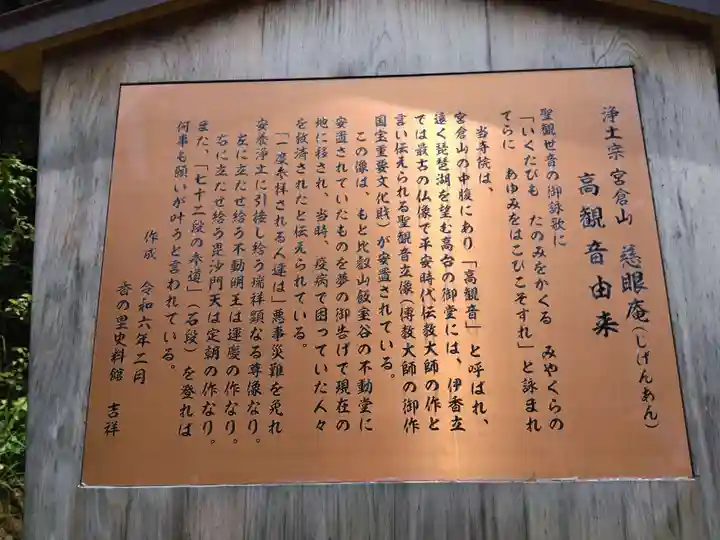 浄土宗 宮倉山 慈眼庵(じげんあん)
高観音由来
聖観世音の御詠歌に
「いくたびも たのみをかくる みやくらの
てらに あゆみをはこびこそすれ」と詠まれ
当寺院は、
宮倉山の中腹にあり「高観音」と呼ばれ、
遠く琵琶湖を望む高台の御堂には、伊香立
では最古の仏像で平安時代伝教大師の作と
言い伝えられる聖観音立像(傳教大師の御作
国宝重要文化財)が安置されている。
この像は、もと比叡山飯室谷の不動堂に
安置されていたものを夢の御告げで現在の
地に移され、当時、疫病で困っていた人々
を救済されたと伝えられている。
「一度参拝される人達は」悪事災難を免れ
安養浄土に引接し給う瑞祥顕なる尊像なり。
左に立たせ給う不動明王は運慶の作なり。
右に立たせ給う毘沙門天は定朝の作なり。
また、「七十二段の参道」(石段)を登れば
何事も願いが叶うと言われている。
作成 令和六年二月
香の里史料館 吉祥